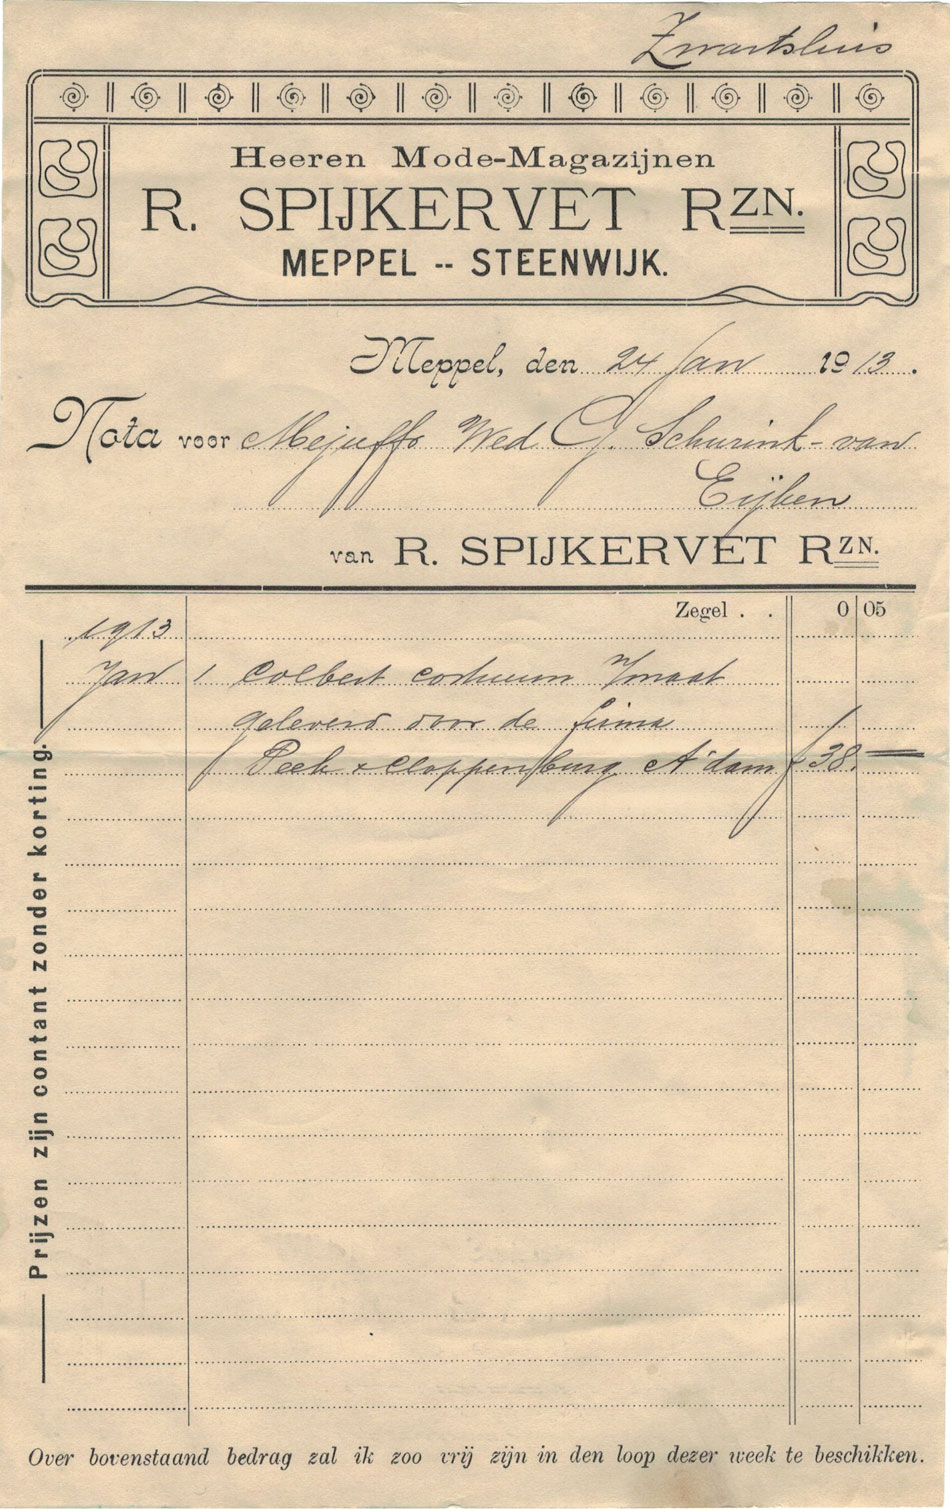 Zwartsluis
Heeren Mode-Magazijnen
R. SPIJKERVET RZN.
MEPPEL -- STEENWIJK.
Meppel, den 24 Jan 1913.
Nota voor Mejuffr Wed G. Schurink-van
Eijben
van R. SPIJKERVET RZN.
Zegel . . 0 05
1913
Jan 1 Colbert costuum n/maat
geleverd door de firma
Peek & Cloppenburg A'dam f 38.
Prijzen zijn contant zonder korting.
Over bovenstaand bedrag zal ik zoo vrij zijn in den loop dezer week te beschikken.